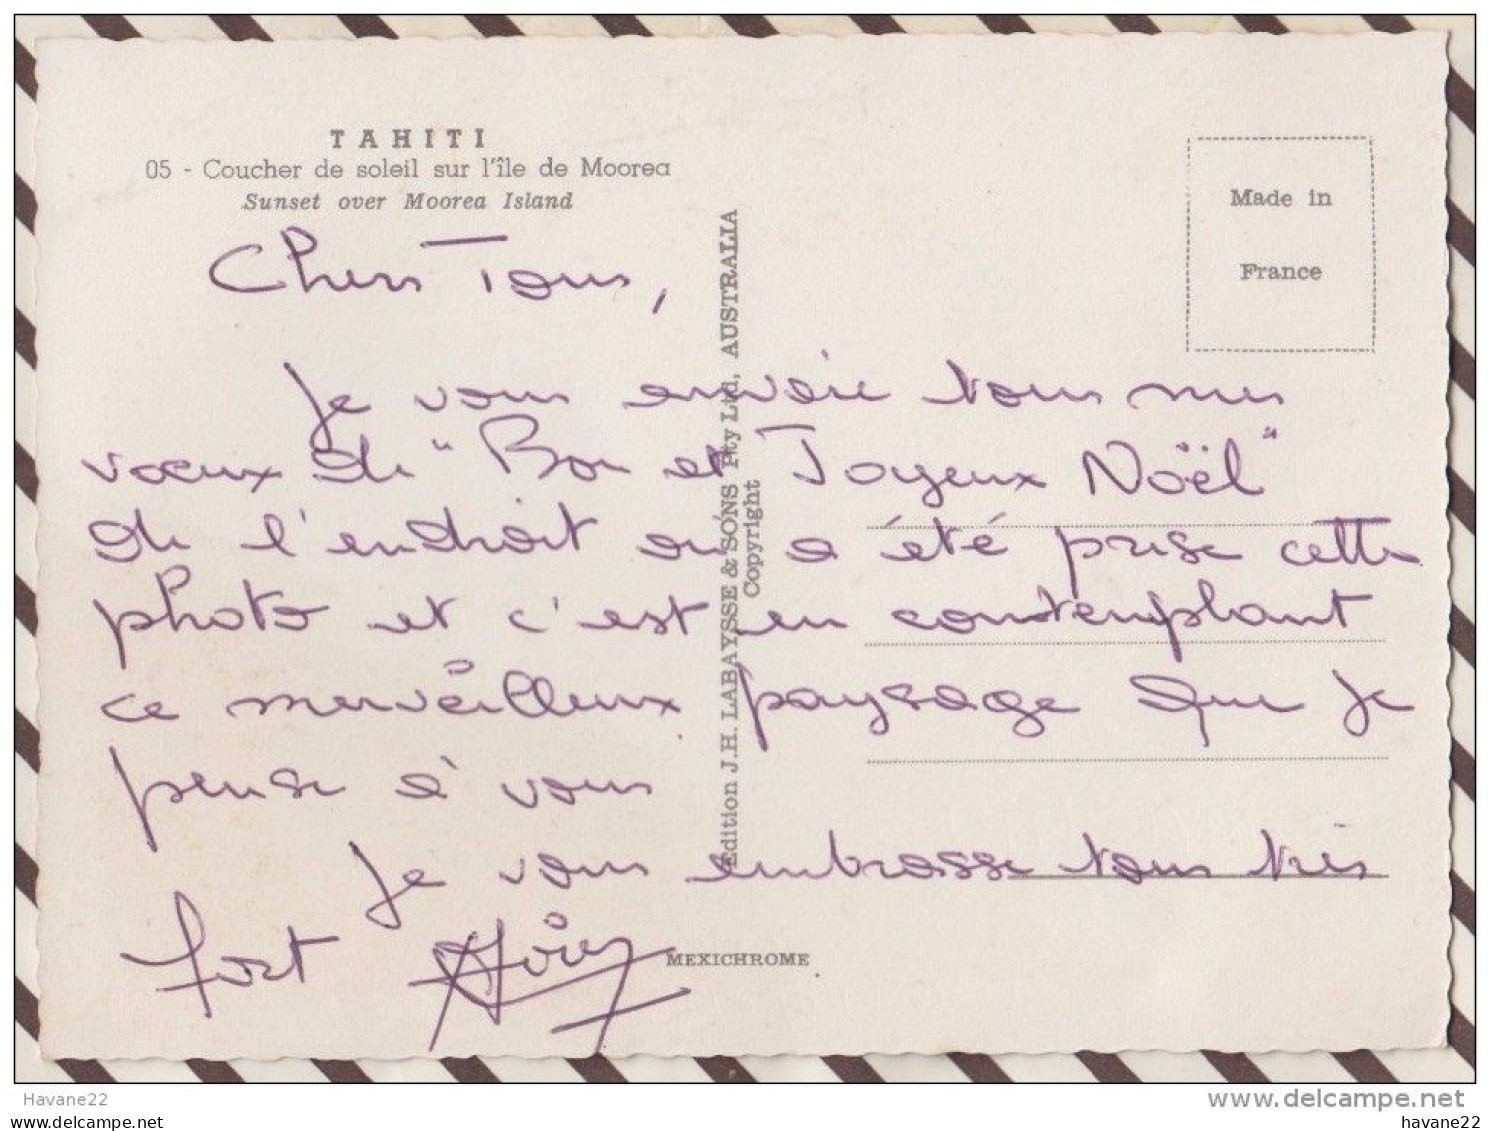 TAHITI
05 - Coucher de soleil sur l'île de Moorea
Sunset over Moorea Island
Made in
France
Chers Tous,
Je vous envoie tous mes
voeux de "Bon et Joyeux Noël"
de l'endroit où a été prise cette
photo et c'est en contemplant
ce merveilleux paysage que je
pense à vous
Je vous embrasse tous très
fort
Edition J.H. LABAYSSE & SONS Pty Ltd, AUSTRALIA
Copyright
MEXICHROME
Havane22
delcampe.net
havane22
havane22